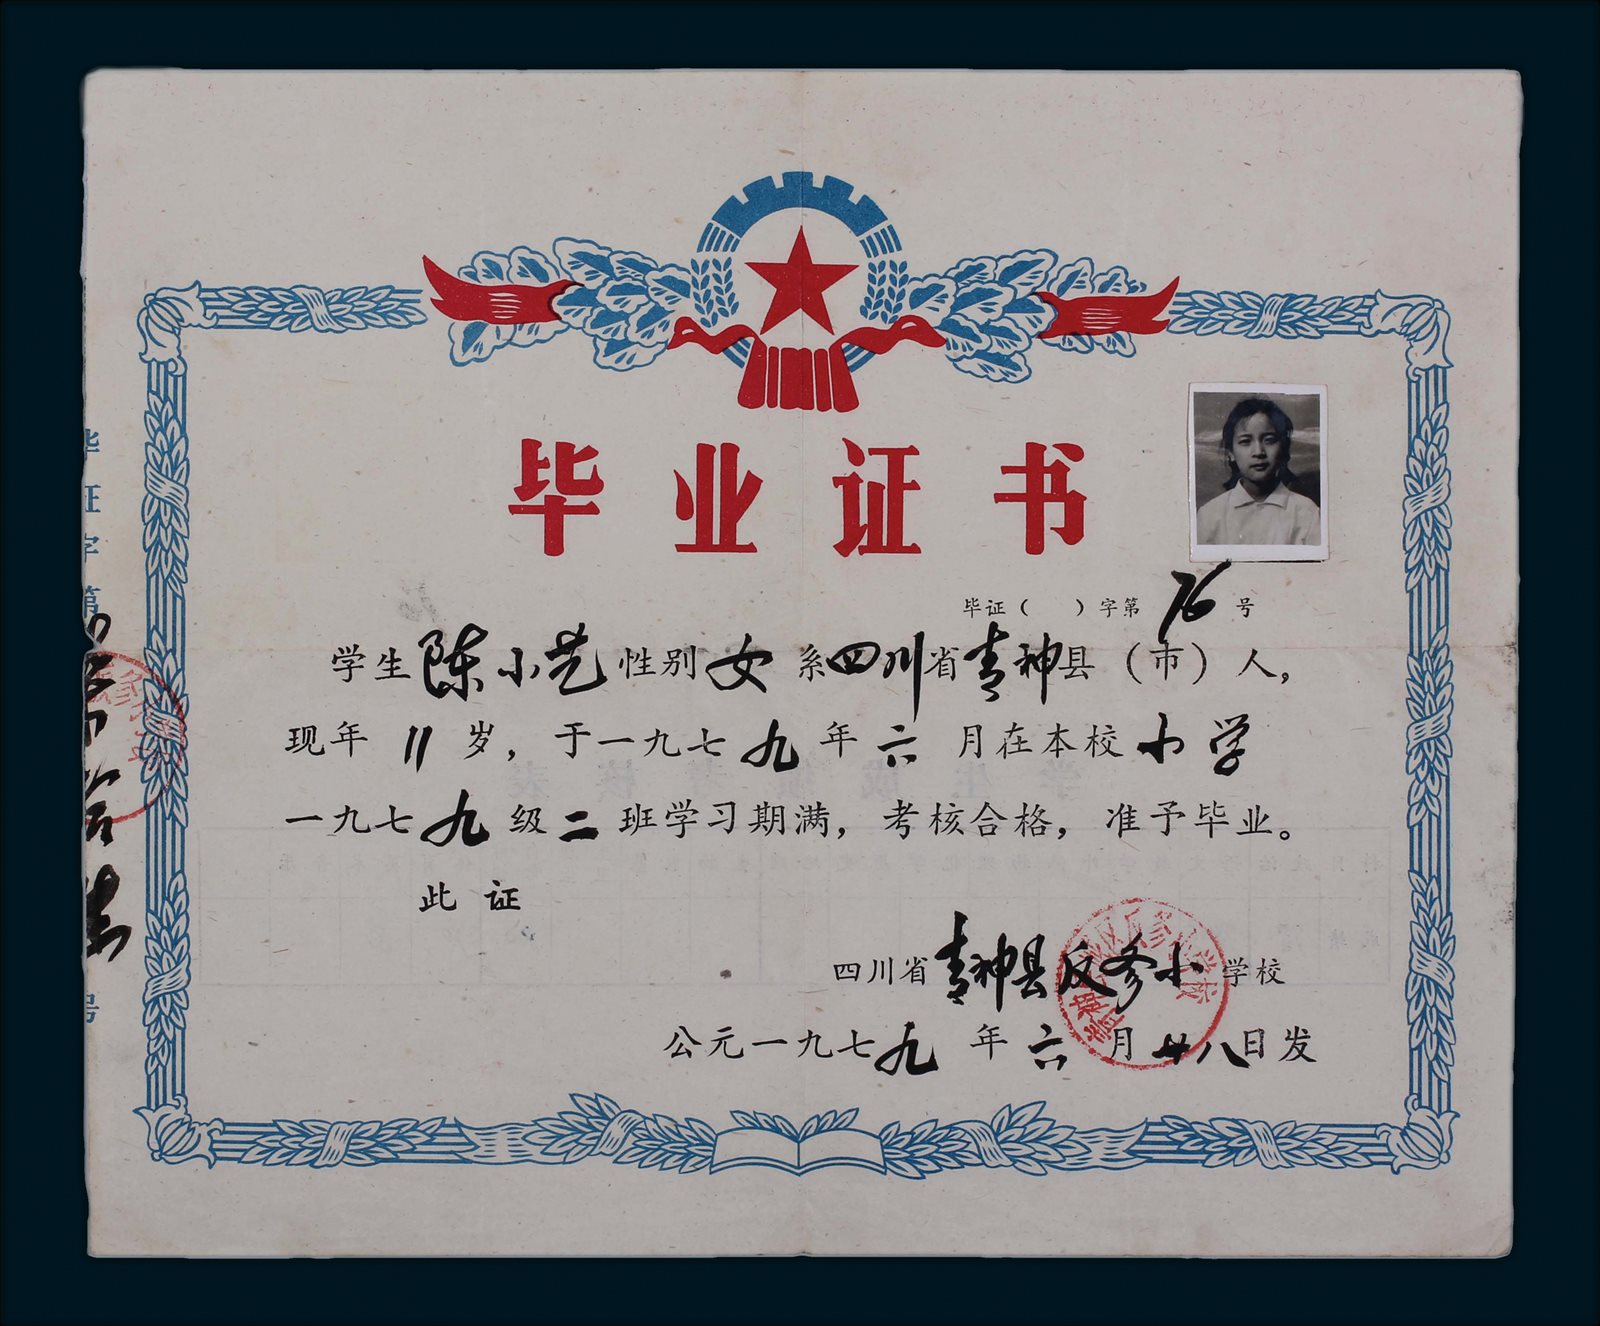 毕业证书
毕证（ ）字第76号
学生陈小艺性别女系四川省青神县（市）人，
现年11岁，于一九七九年六月在本校小学
一九七九级二班学习期满，考核合格，准予毕业。
此证
四川省青神县反修小学校
公元一九七九年六月廿八日发
毕证字第
号